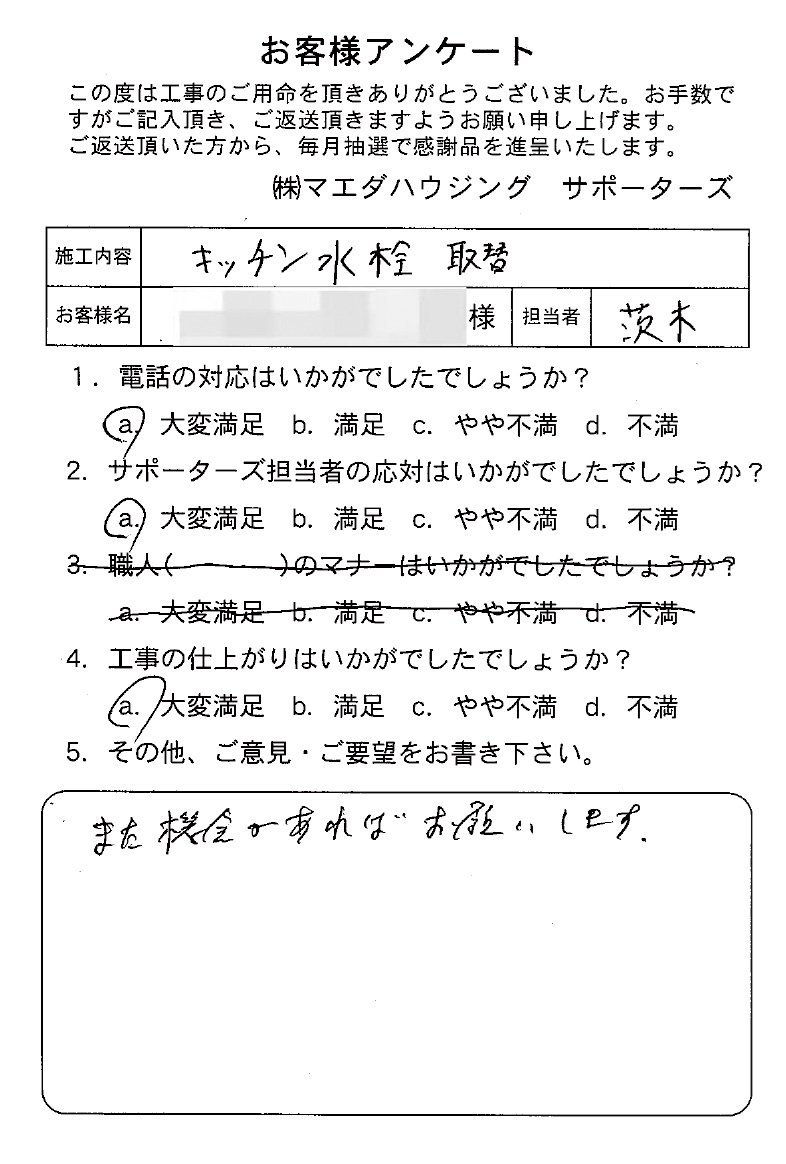 お客様アンケート
この度は工事のご用命を頂きありがとうございました。お手数で
すがご記入頂き、ご返送頂きますようお願い申し上げます。
ご返送頂いた方から、毎月抽選で感謝品を進呈いたします。
㈱マエダハウジング　サポーターズ
施工内容 キッチン水栓 取替
お客様名 様 担当者 茨木
1．電話の対応はいかがでしたでしょうか？
a. 大変満足 b. 満足 c. やや不満 d. 不満
2. サポーターズ担当者の応対はいかがでしたでしょうか？
a. 大変満足 b. 満足 c. やや不満 d. 不満
3. 職人( )のマナーはいかがでしたでしょうか？
a. 大変満足 b. 満足 c. やや不満 d. 不満
4. 工事の仕上がりはいかがでしたでしょうか？
a. 大変満足 b. 満足 c. やや不満 d. 不満
5. その他、ご意見・ご要望をお書き下さい。
また機会があればお願いします.